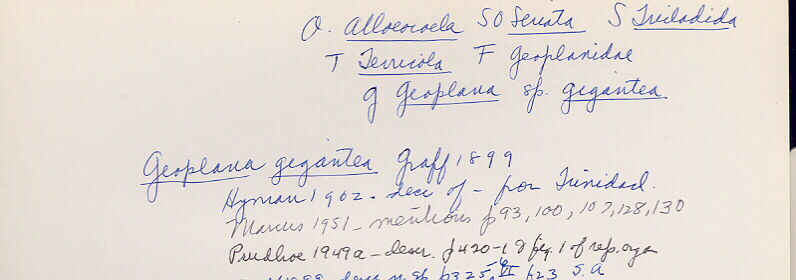 O. Alloeocoela SO Seriata S Tricladida
T Terricola F Geoplanidae
g Geoplana sp. gigantea
Geoplana gigantea Graff 1899
Hyman 1962 - of - Trinidad.
Marcus 1951 - mentions p 93, 100, 107, 128, 130
Prudhoe 1949a - descr. p 420-1 & fig. 1 of rep. organ
1899 descr n. sp. p 325, VI f 23 S. A